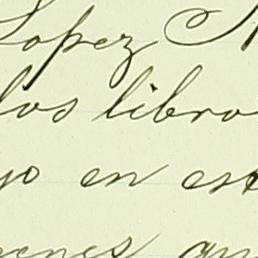 Lopez
los libro
yo en es
enes qu